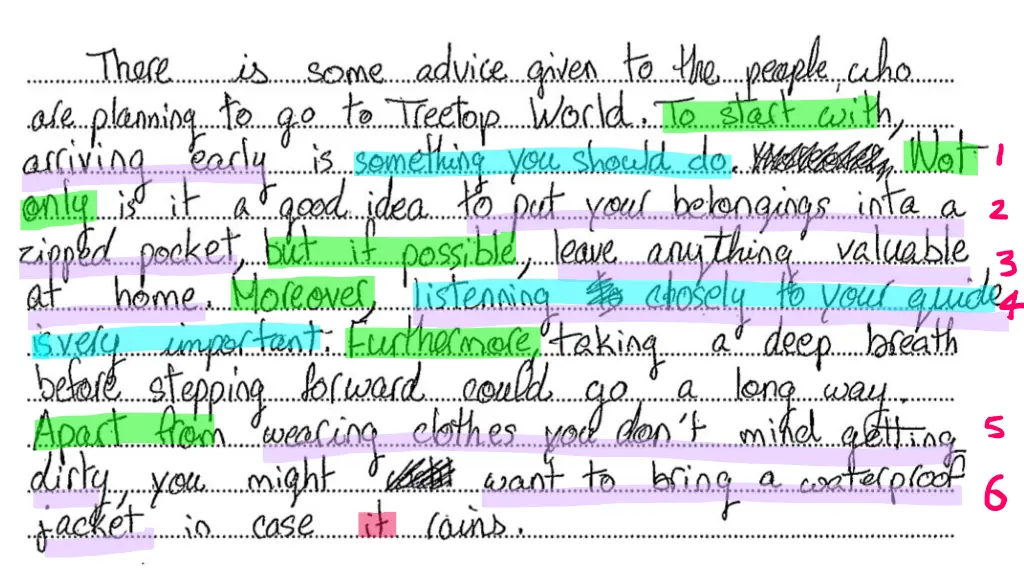 There is some advice given to the people who
are planning to go to Treetop World. To start with,
arriving early is something you should do. Not 1
only is it a good idea to put your belongings inta a 2
zipped pocket, but if possible, leave anything valuable 3
at home. Moreover, listenning chosely to your guide 4
is very important. Furthermore, taking a deep breath
before stepping forward could go a long way.
Apart from wearing clothes you don't mind getting 5
dirty, you might want to bring a waterproof 6
jacket in case it rains.